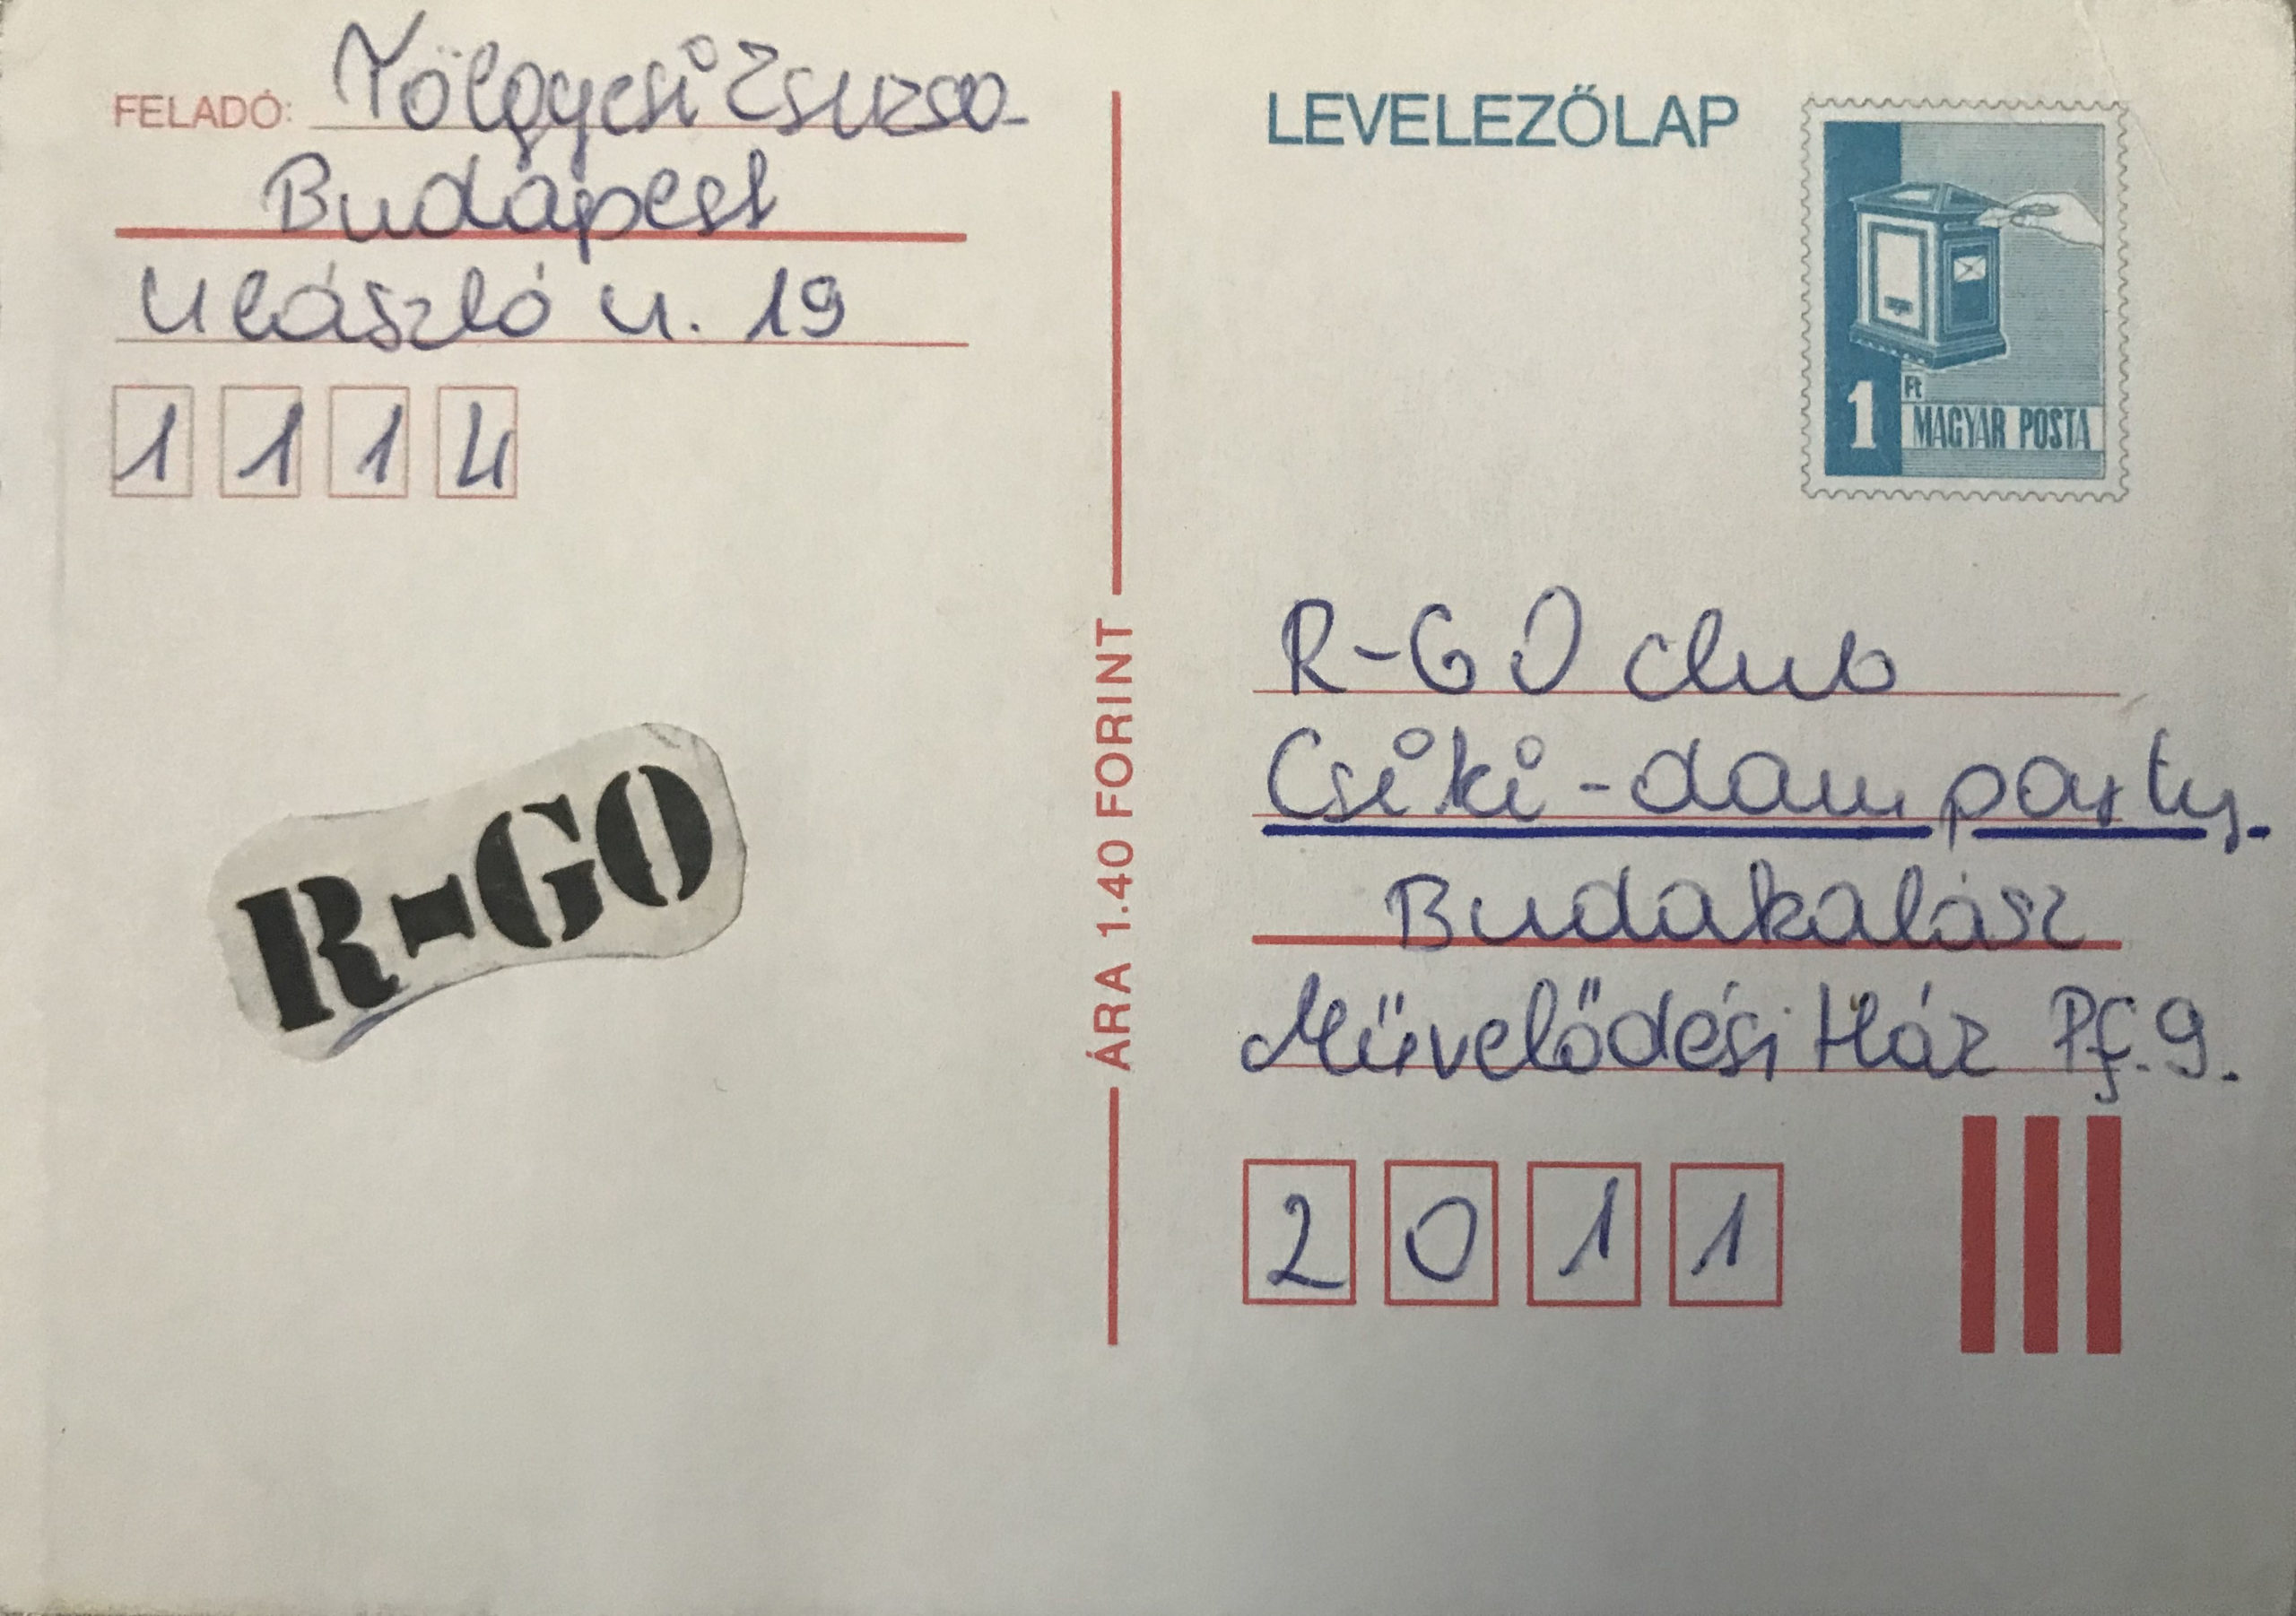 FELADÓ: Tölgyesi Zsuzsa
Budapest
Ulászló u. 19
1114
R-GO
ÁRA 1.40 FORINT
LEVELEZŐLAP
1 Ft
MAGYAR POSTA
R-GO club
Csiki-dam party.
Budakalász
Művelődési Ház Pf. 9.
2011